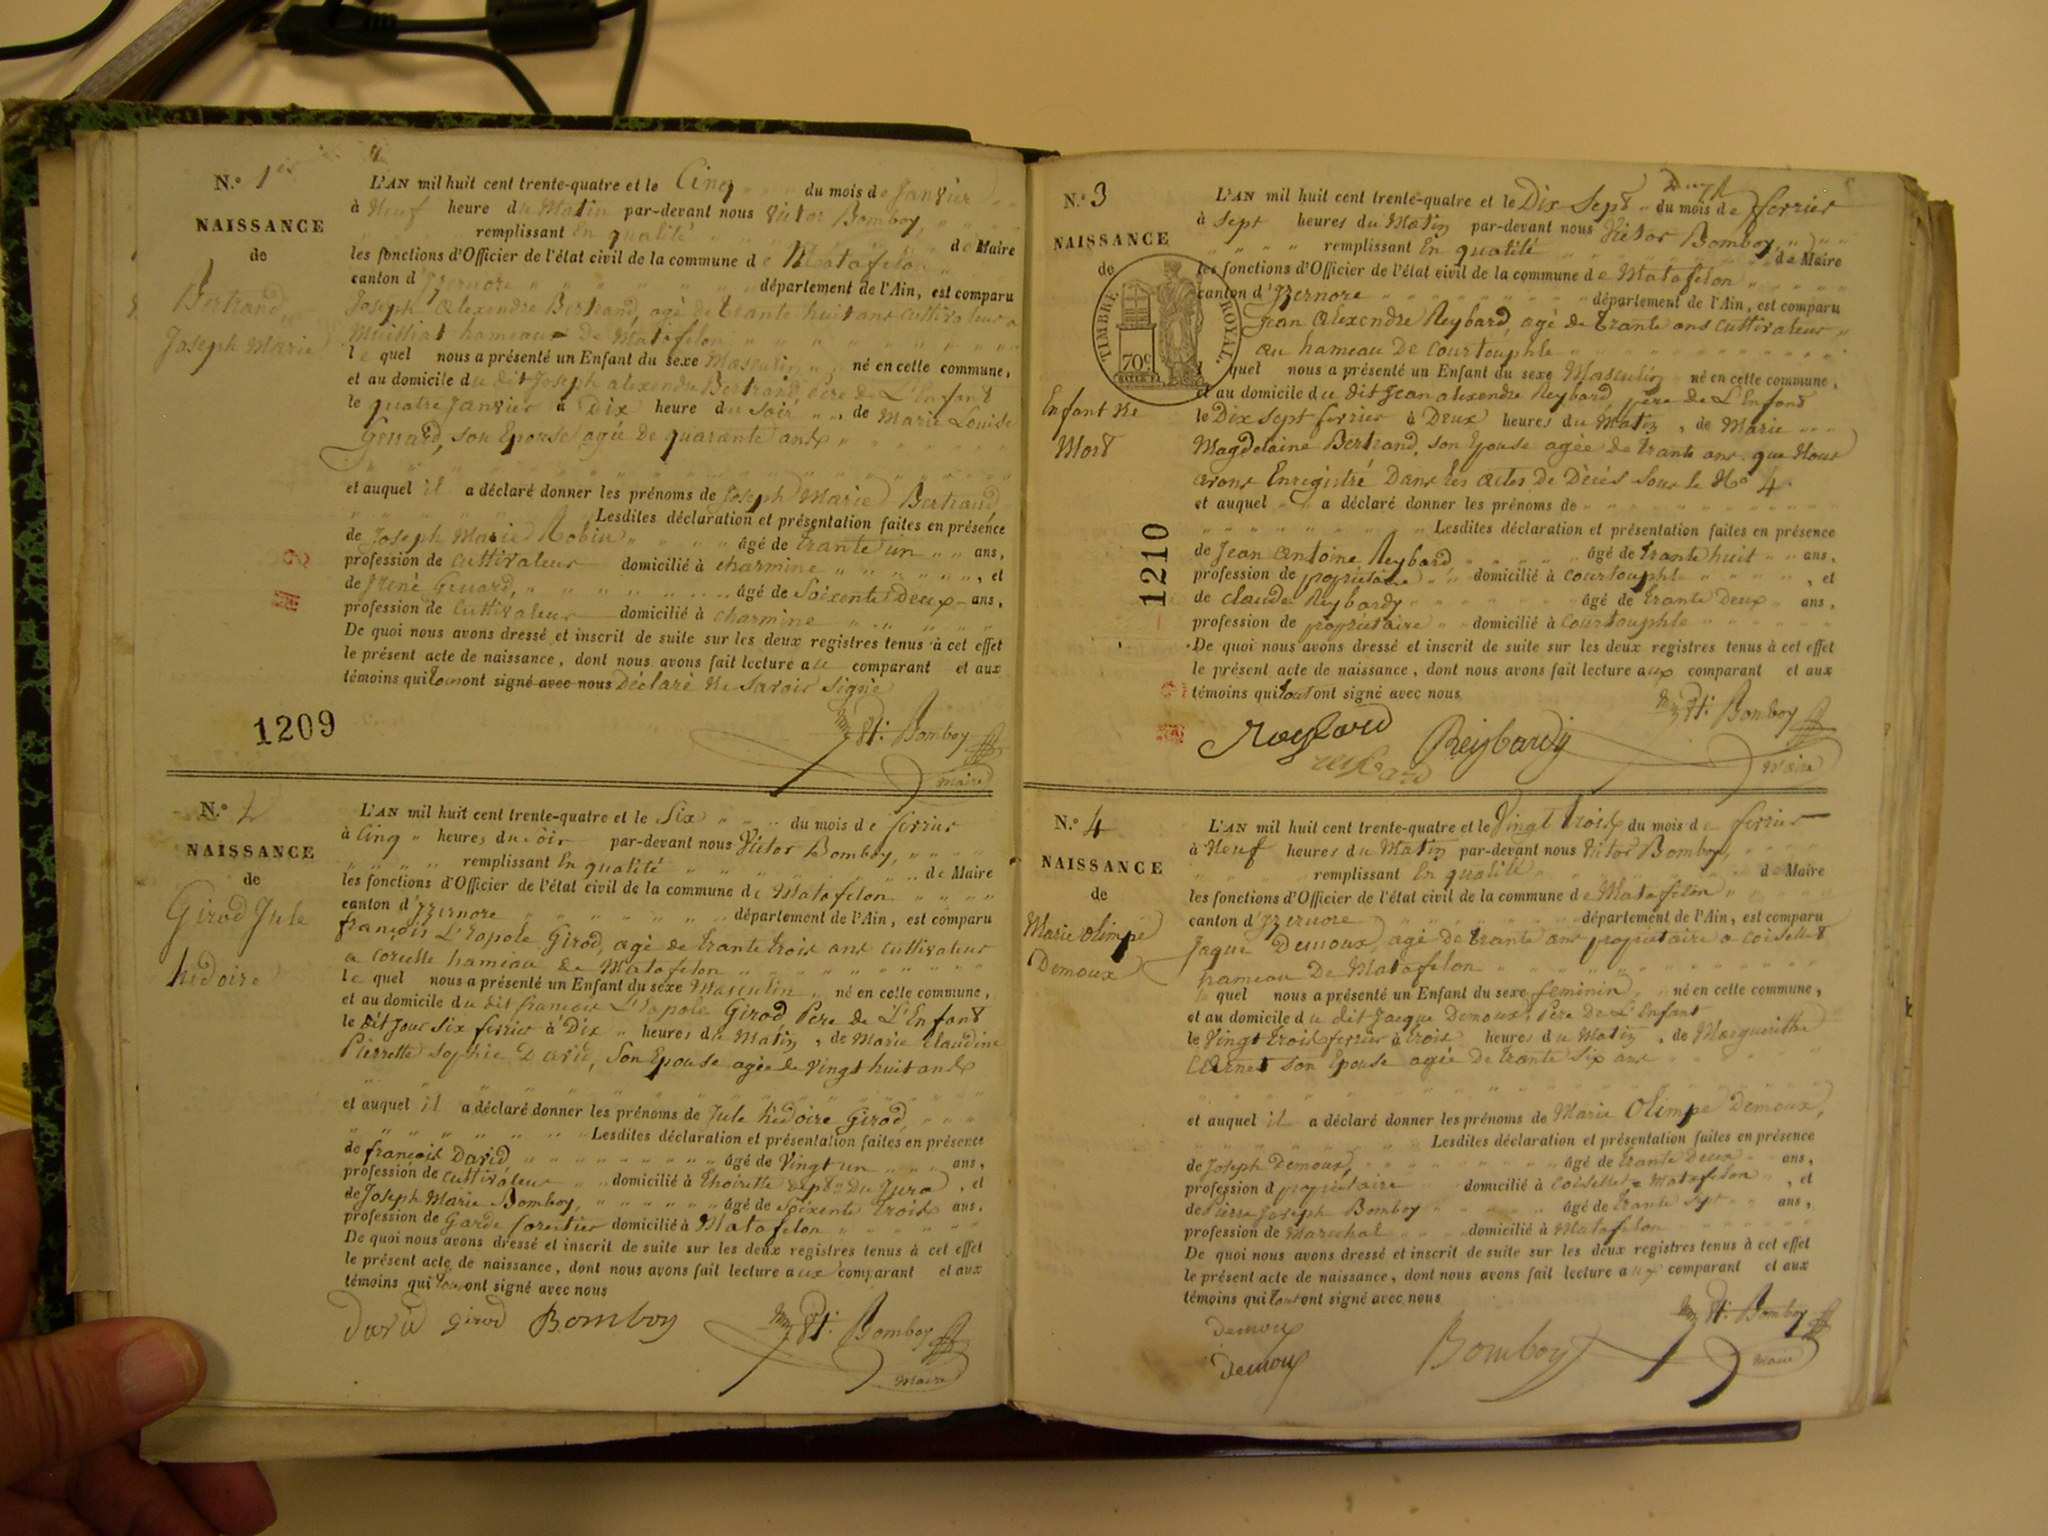 N.º 1er
NAISSANCE
de
Bertrand
Joseph Marie
L'AN mil huit cent trente-quatre et le Cinq du mois de Janvier
à Neuf heure du Matin par-devant nous Victor Bomboy,
remplissant en qualité de Maire
les fonctions d'Officier de l'état civil de la commune de Matafelon
canton d'Izernore département de l'Ain, est comparu
Joseph alexendre Bertrand, agé de trante huit ans cultivateur a
hameau De Matafelon
le quel nous a présenté un Enfant du sexe Masculin né en cette commune,
et au domicile du dit Joseph alexendre Bertrand, père de L'Enfant
le quatre Janvier à Dix heure du Soir, de Marie Louise
son Epouse agée De quarante ans
et auquel il a déclaré donner les prénoms de Joseph Marie Bertrand
Lesdites déclaration et présentation faites en présence
de Joseph Marie Robin âgé de trante un ans,
profession de cultivateur domicilié à charmine, et
de âgé de Soixente Deux ans,
profession de cultivateur domicilié à charmine
De quoi nous avons dressé et inscrit de suite sur les deux registres tenus à cet effet
le présent acte de naissance, dont nous avons fait lecture au comparant et aux
témoins qui ont signé avec nous Déclaré Ne Savoir Signé
Bomboy
maire
1209
N.º 2
NAISSANCE
de
Girod Jule
hédoire
L'AN mil huit cent trente-quatre et le Six du mois de ferrier
à Cinq heures du soir par-devant nous Victor Bomboy,
remplissant En qualité de Maire
les fonctions d'Officier de l'état civil de la commune de Matafelon
canton d'Izernore département de l'Ain, est comparu
françois L'Eopole Girod, agé de trante trois ans cultivateur
a hameau de Matafelon
le quel nous a présenté un Enfant du sexe Masculin né en cette commune,
et au domicile du dit françois L'Eopole Girod Père de L'Enfant
le dit Jour Six ferrier à Dix heures du Matin, de Marie claudine
Pierrette Sophie David, Son Epouse agée de Vingt huit ans
et auquel il a déclaré donner les prénoms de Jule hédoire Girod,
Lesdites déclaration et présentation faites en présence
de françois David âgé de Vingt un ans,
profession de cultivateur domicilié à thoirette Du Jura, et
de Joseph Marie Bomboy, âgé de Soixente trois ans.
profession de Garde forestier domicilié à Matafelon
De quoi nous avons dressé et inscrit de suite sur les deux registres tenus à cet effet
le présent acte de naissance, dont nous avons fait lecture aux comparant et aux
témoins qui tous ont signé avec nous
David Girod Bomboy
Bomboy
Maire
N.º 3
NAISSANCE
de
TIMBRE ROYAL.
70c
Enfant Né
Mort
1210
L'AN mil huit cent trente-quatre et le Dix Sept du mois de ferrier
à Sept heures du Matin par-devant nous Victor Bomboy,
remplissant En qualité de Maire
les fonctions d'Officier de l'état civil de la commune de Matafelon
canton d'Izernore département de l'Ain, est comparu
Jean alexendre Reybard, agé de trante ans cultivateur
au hameau De courtouphle
quel nous a présenté un Enfant du sexe Masculin né en cette commune,
et au domicile du dit Jean alexendre Reybard, père de L'Enfant
le Dix Sept ferrier à Deux heures du Matin, de Marie
Magdelaine Bertrand, son Epouse agée de trante ans que Nous
avons Enregistré Dans les actes De Décès Sous le No 4.
et auquel a déclaré donner les prénoms de
Lesdites déclaration et présentation faites en présence
de Jean antoine Reybard âgé de trante huit ans,
profession de propriétaire domicilié à courtouphle, et
de claude Reybardy âgé de trante Deux ans,
profession de propriétaire domicilié à courtouphle
De quoi nous avons dressé et inscrit de suite sur les deux registres tenus à cet effet
le présent acte de naissance, dont nous avons fait lecture aux comparant et aux
témoins qui tous ont signé avec nous
Bomboy
Reybard Reybardy
Maire
N.º 4
NAISSANCE
de
Marie olimpe
Demoux
L'AN mil huit cent trente-quatre et le Vingt trois du mois de ferrier
à Neuf heures du Matin par-devant nous Victor Bomboy,
remplissant En qualité de Maire
les fonctions d'Officier de l'état civil de la commune de Matafelon
canton d'Izernore département de l'Ain, est comparu
Jaque Demoux, agé De trante ans propriétaire a coisellet
hameau De Matafelon
quel nous a présenté un Enfant du sexe feminin, né en cette commune,
et au domicile du dit Jacque Demoux, Père De L'Enfant
le Vingt trois ferrier à trois heures du Matin, de Marguerithe
son Epouse agée De trante Six ans
et auquel il a déclaré donner les prénoms de Marie Olimpe Demoux,
Lesdites déclaration et présentation faites en présence
de Joseph Demoux, âgé de trante Deux ans,
profession d propriétaire domicilié à Coisellet Matafelon, et
de Pierre Joseph Bomboy âgé de trante Sept ans,
profession de Marechal domicilié à Matafelon
De quoi nous avons dressé et inscrit de suite sur les deux registres tenus à cet effet
le présent acte de naissance, dont nous avons fait lecture aux comparant et aux
témoins qui tous ont signé avec nous
Bomboy
demoux
demoux Bomboy
Maire